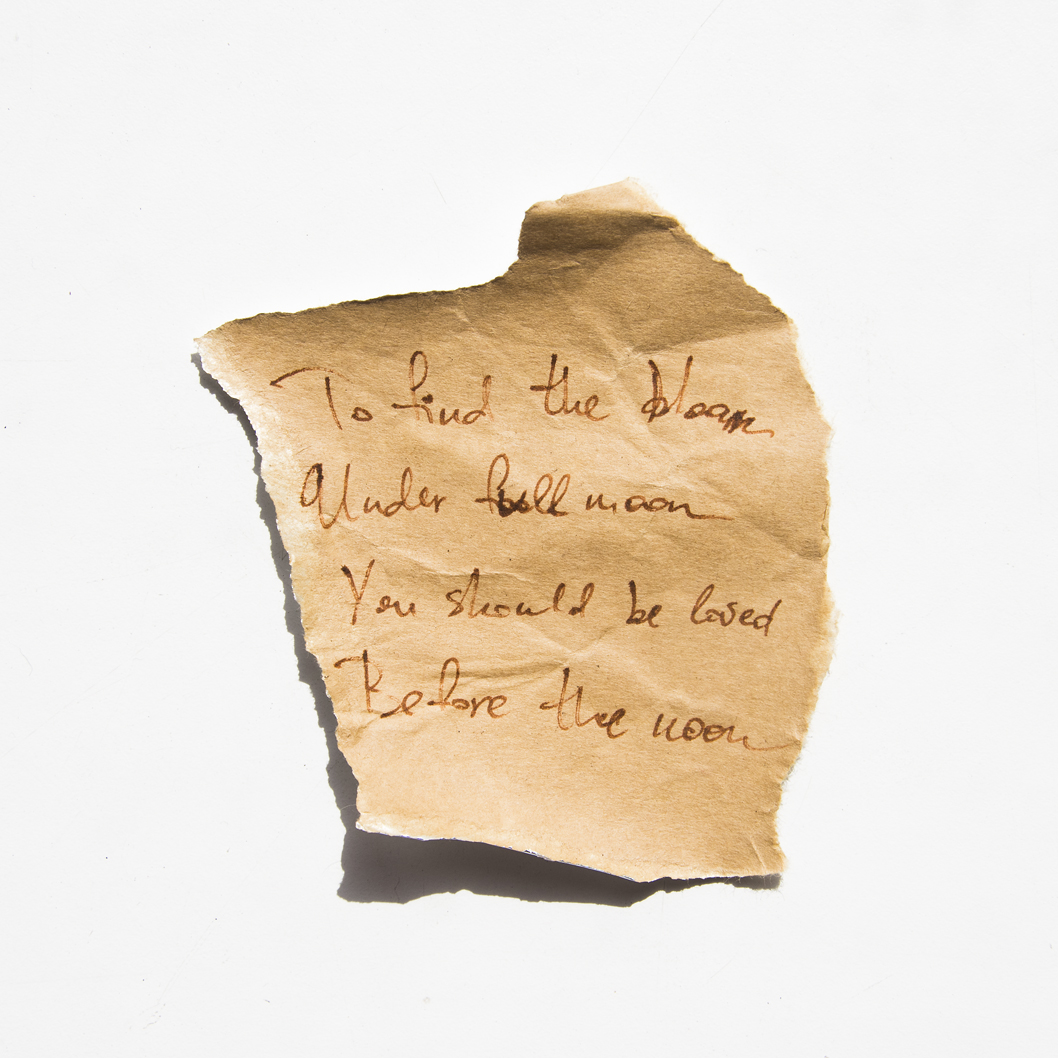 To find the bloom
Under full moon
You should be loved
Before the noon